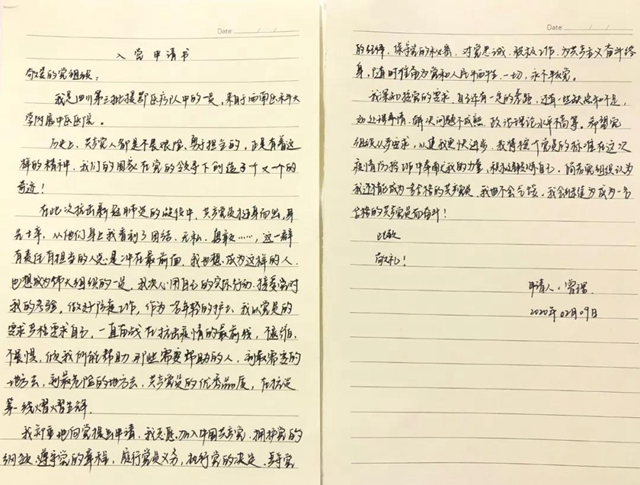 Date / /
入党申请书
敬爱的党组织：
我是四川第三批援鄂医疗队中的一员，来自于西南医科大
学附属中医医院。
历史上，共产党人都是不畏艰险，勇于担当的，正是有着这
样的精神，我们的国家在党的领导下创造了一个又一个的
奇迹！
在此次抗击新冠肺炎的战役中，共产党员挺身而出，身
先士卒，从他们身上我看到了团结、无私、勇敢……，这一群
有责任有担当的人总是冲在最前面。我也想成为这样的人，
也想成为伟大组织的一员。我决心用自己的实际行动，接受党对
我的考验，做好防疫工作。作为一名年轻的护士，我以党员的
要求严格要求自己，一直奋战在抗击疫情的最前线，不退缩、
不畏惧，做我所能帮助那些需要帮助的人，到最需要的
地方去，到最危险的地方去，共产党员的优秀品质，在抗疫
第一线熠熠生辉。
我郑重地向党提出申请：我志愿加入中国共产党，拥护党的
纲领，遵守党的章程，履行党员义务，执行党的决定，严守党
Date / /
的纪律，保守党的秘密，对党忠诚，积极工作，为共产主义奋斗终
身，随时准备为党和人民牺牲一切，永不叛党。
我深知按党的要求，自己还有一定的差距，还有一些缺点和不足，
如处理事情、解决问题不成熟，政治理论水平不高等。希望党
组织从严要求，以使我更快进步。我将按党员的标准在这次
疫情防控工作中奉献我的力量，
我还不能成为一名合格的共产党员，我也不会气馁，我会继续为成为一名
合格的共产党员而奋斗！
此致
敬礼！
申请人：
2020年02月09日